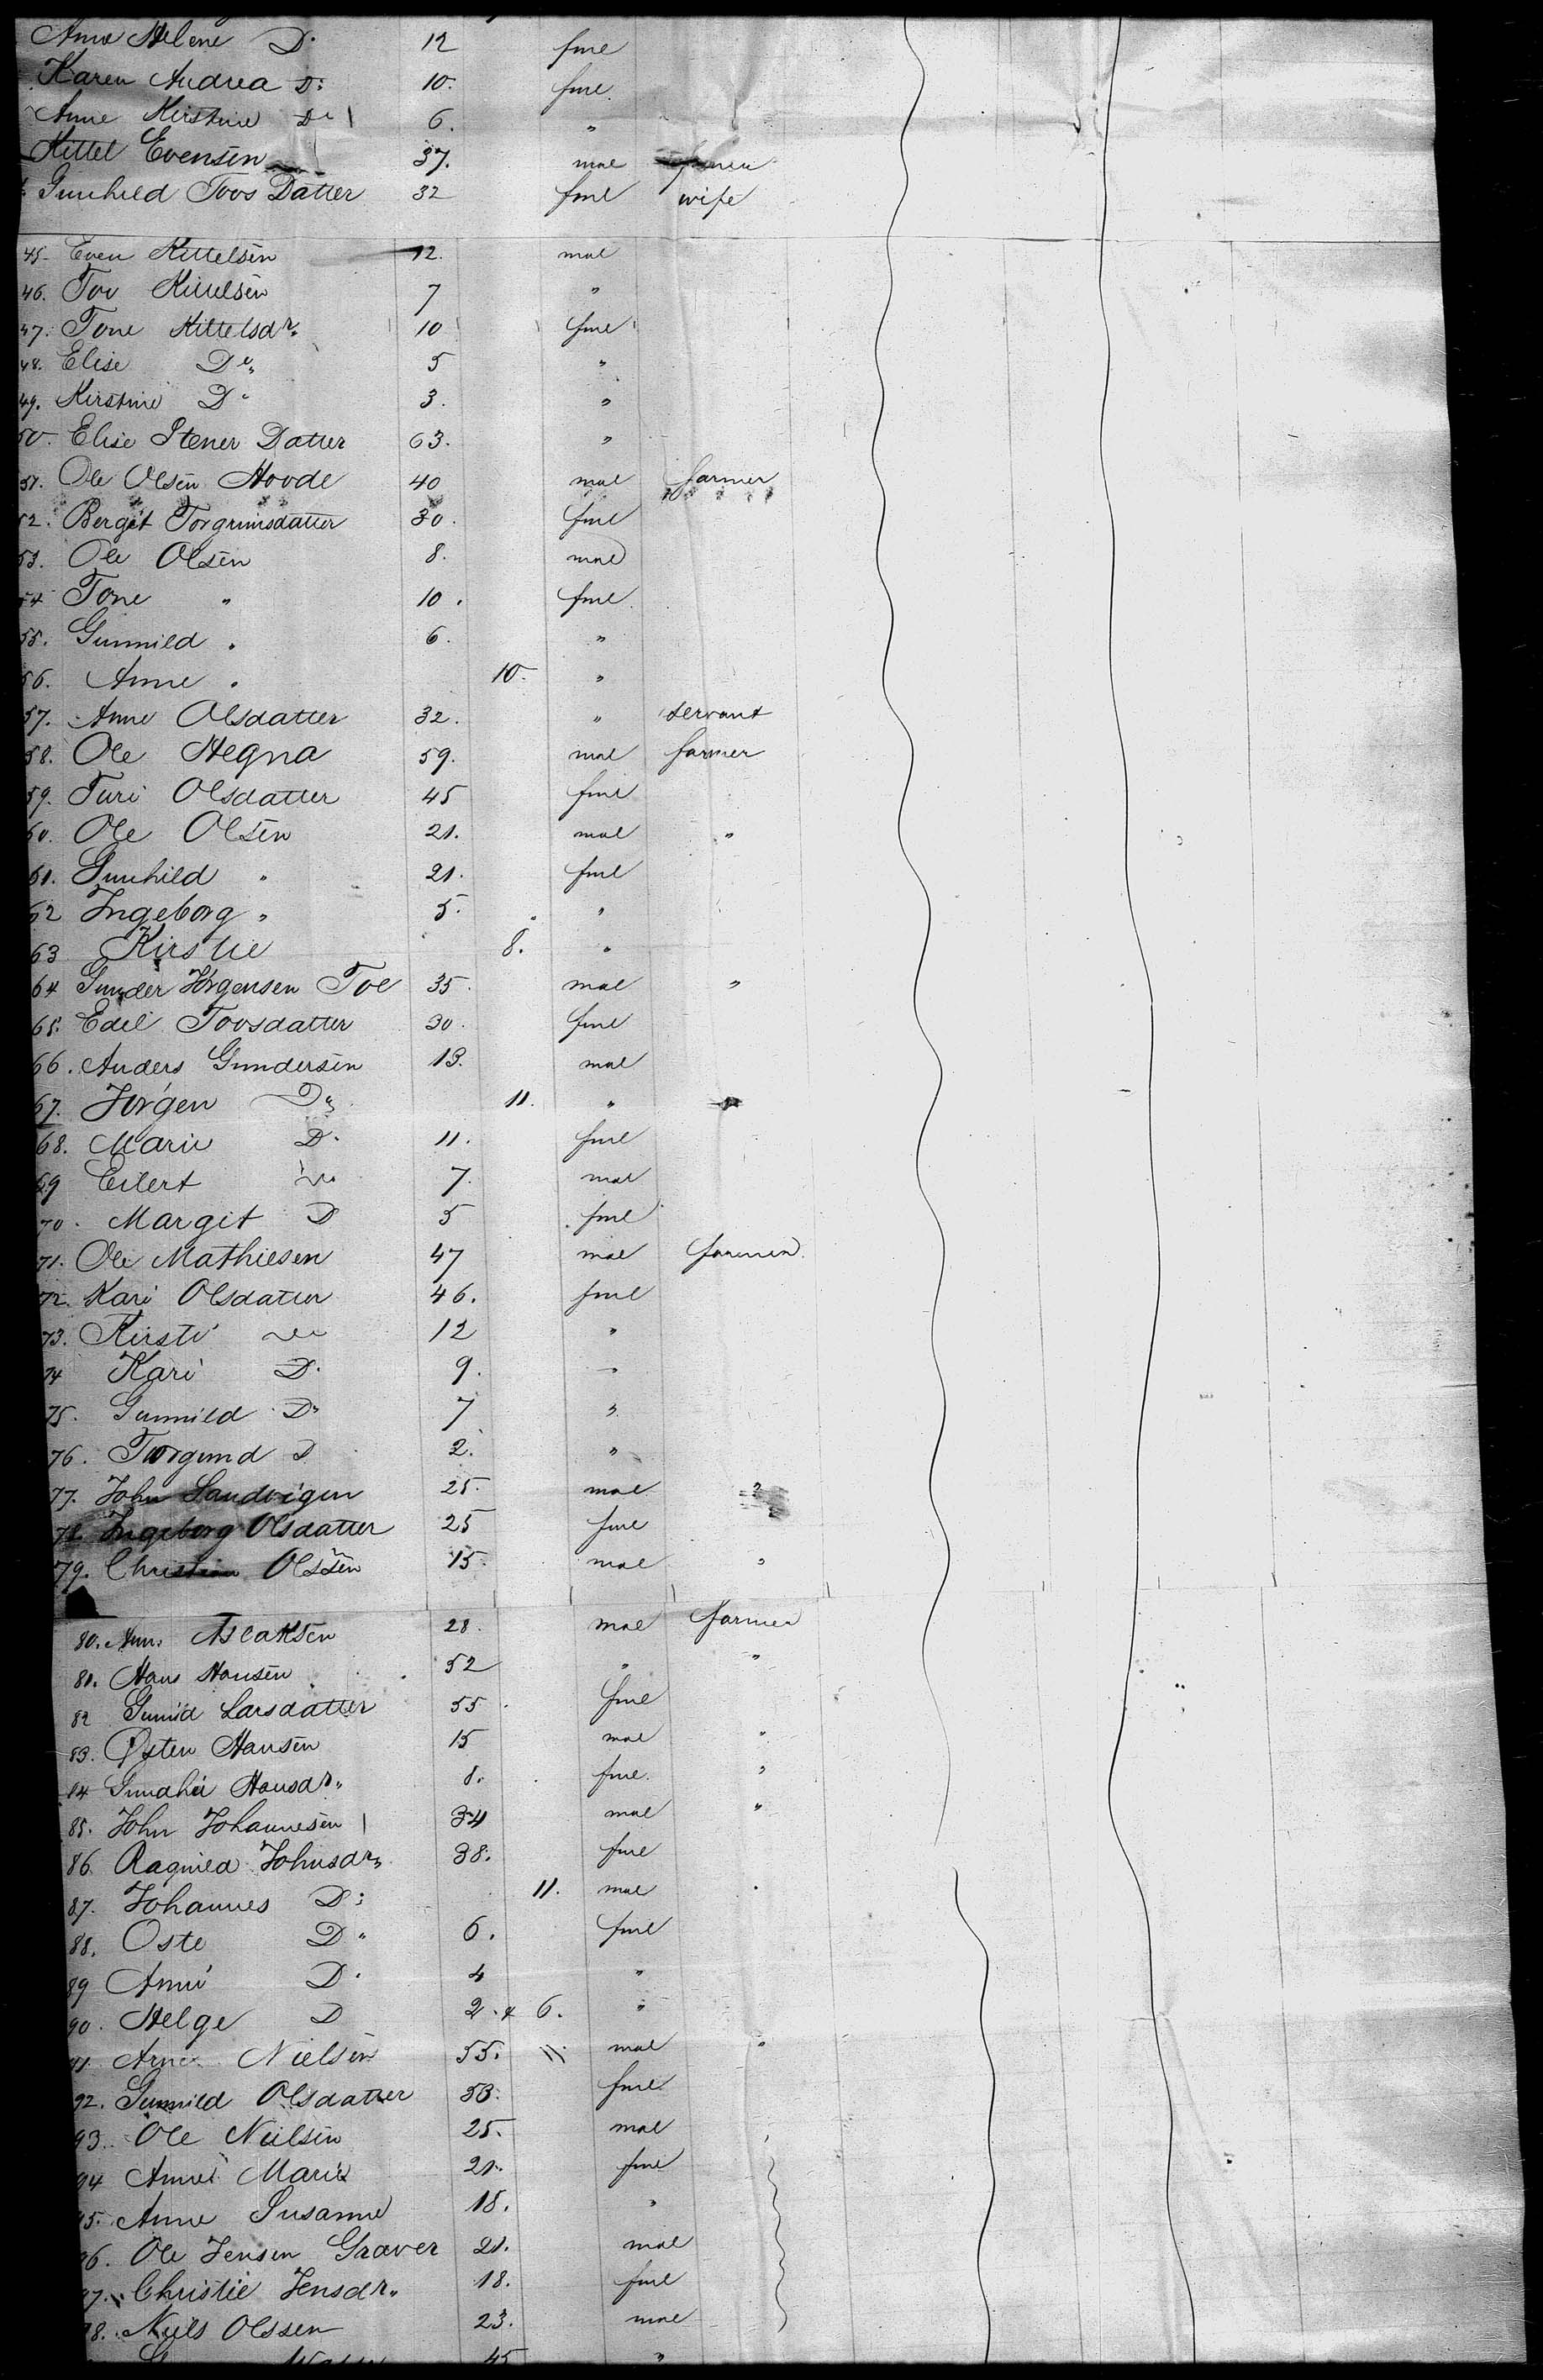 Anne Helene D. 12 fml
Karen Andrea D: 10. fml.
Anne Kirstine Do 6. "
Kittel Evensen 37. mal
Gunhild Tovs Datter 32 fml wife
45- Even Kittelsen 12. mal
46. Tov Kittelsen 7 "
47. Tone Kittelsdr. 10 fml
48. Elise Do" 5 "
49. Kirstine D" 3. "
50. Elise Stener Datter 63. "
51. Ole Olsen Hovde 40 mal farmer
52. Bergit Torgrimsdatter 30. fml
53. Ole Olsen 8. mal
54 Tone " 10. fml.
55. Gunnild " 6. "
56. Anne " 10. "
57. Anne Olsdatter 32. " servant
58. Ole Hegna 59. mal farmer
59. Turi Olsdatter 45 fml
60. Ole Olsen 21. mal "
61. Gunhild " 21. fml
62 Ingeborg " 5. "
63 Kirstie 8. "
64 Gunder Jörgensen Toe 35. mal "
65. Edel Tovsdatter 30. fml
66. Anders Gundersen 13. mal
67. Jörgen Do 11. "
68. Marie D. 11. fml
69 Eilert Do 7. mal
70. Margit D 5 fml
71. Ole Mathiesen 47 mal farmer
72. Kari Olsdatter 46. fml
73. Kirsti Do 12 "
74 Kari D. 9. "
75. Gunnild D" 7 "
76. Torgund D 2. "
77. John Sandvigen 25. mal "
78. Ingeborg Olsdatter 25 fml
79. Christian Olssen 15. mal "
80. Aslaksen 28. mal farmer
81. Hans Hansen 52 " "
82 Larsdatter 55. fml
83. Østen Hansen 15 mal "
84 Hansdr" 8. fml. "
85. John Johannesen 34 mal "
86. Ragnild Johnsdr" 38. fml
87. Johannes D: 11. mal "
88. Oste D" 6. fml
89 D. 4 "
90. Helge D 2. & 6. "
91. Arne Nielsen 55. mal "
92. Gunnild Olsdatter 53. fml
93. Ole Nielsen 25. mal
94 Anne Marie 21. fml
95. Anne Susanne 18. "
96. Ole Jensen Graver 21. mal
97. Christie Jensdr" 18. fml
98. Niels Olssen 23. mal
45 "